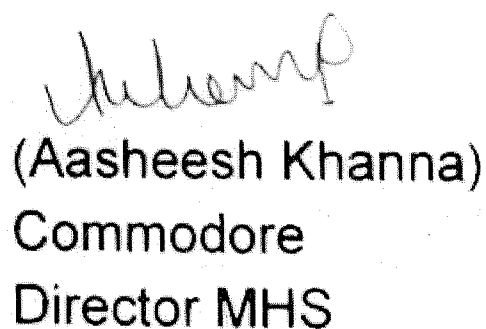 (Aasheesh Khanna)
Commodore
Director MHS